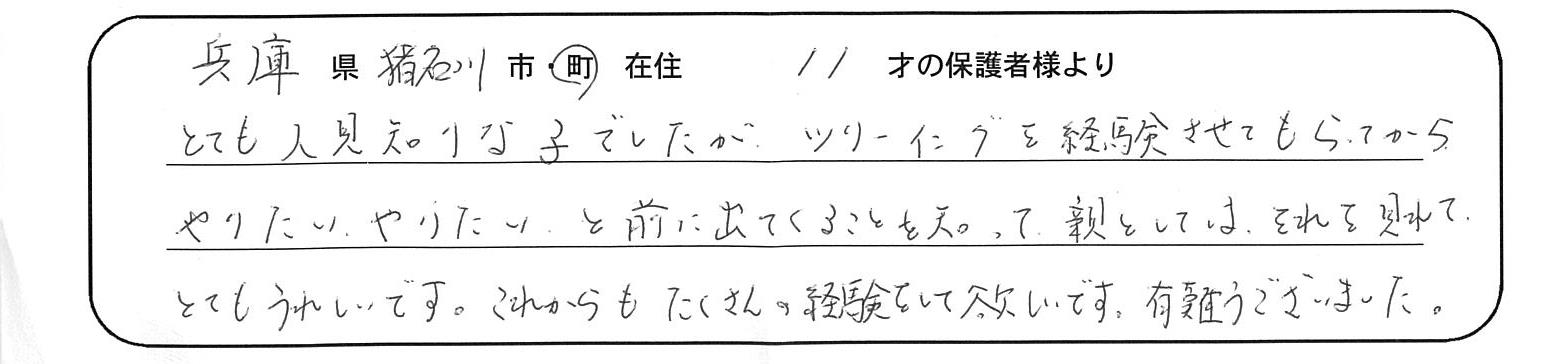 兵庫 県 猪名川 市・町 在住 11 才の保護者様より
とても人見知りな子でしたが、ツリーイングを経験させてもらってから
やりたい、やりたい、と前に出てくることを知って、親としては、それを見れて、
とてもうれしいです。これからもたくさんの経験をして欲しいです。有難うございました。